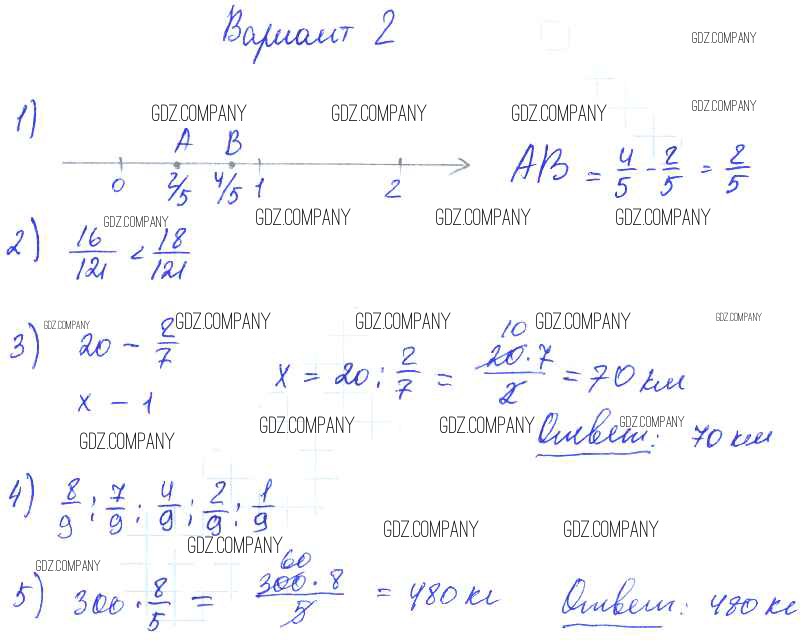 Вариант 2
GDZ.COMPANY
1)
GDZ.COMPANY GDZ.COMPANY GDZ.COMPANY GDZ.COMPANY
A B
0 2/5 4/5 1 2
AB = 4/5 - 2/5 = 2/5
GDZ.COMPANY GDZ.COMPANY GDZ.COMPANY GDZ.COMPANY
2) 16/121 < 18/121
GDZ.COMPANY GDZ.COMPANY GDZ.COMPANY GDZ.COMPANY GDZ.COMPANY
3) 20 - 2/7
x - 1
10
x = 20 : 2/7 = 20·7/2 = 70 км
GDZ.COMPANY GDZ.COMPANY GDZ.COMPANY GDZ.COMPANY
Ответ: 70 км
4) 8/9 ; 7/9 ; 4/9 ; 2/9 ; 1/9
GDZ.COMPANY GDZ.COMPANY GDZ.COMPANY
GDZ.COMPANY
60
5) 300 · 8/5 = 300·8/5 = 480 кг Ответ: 480 кг